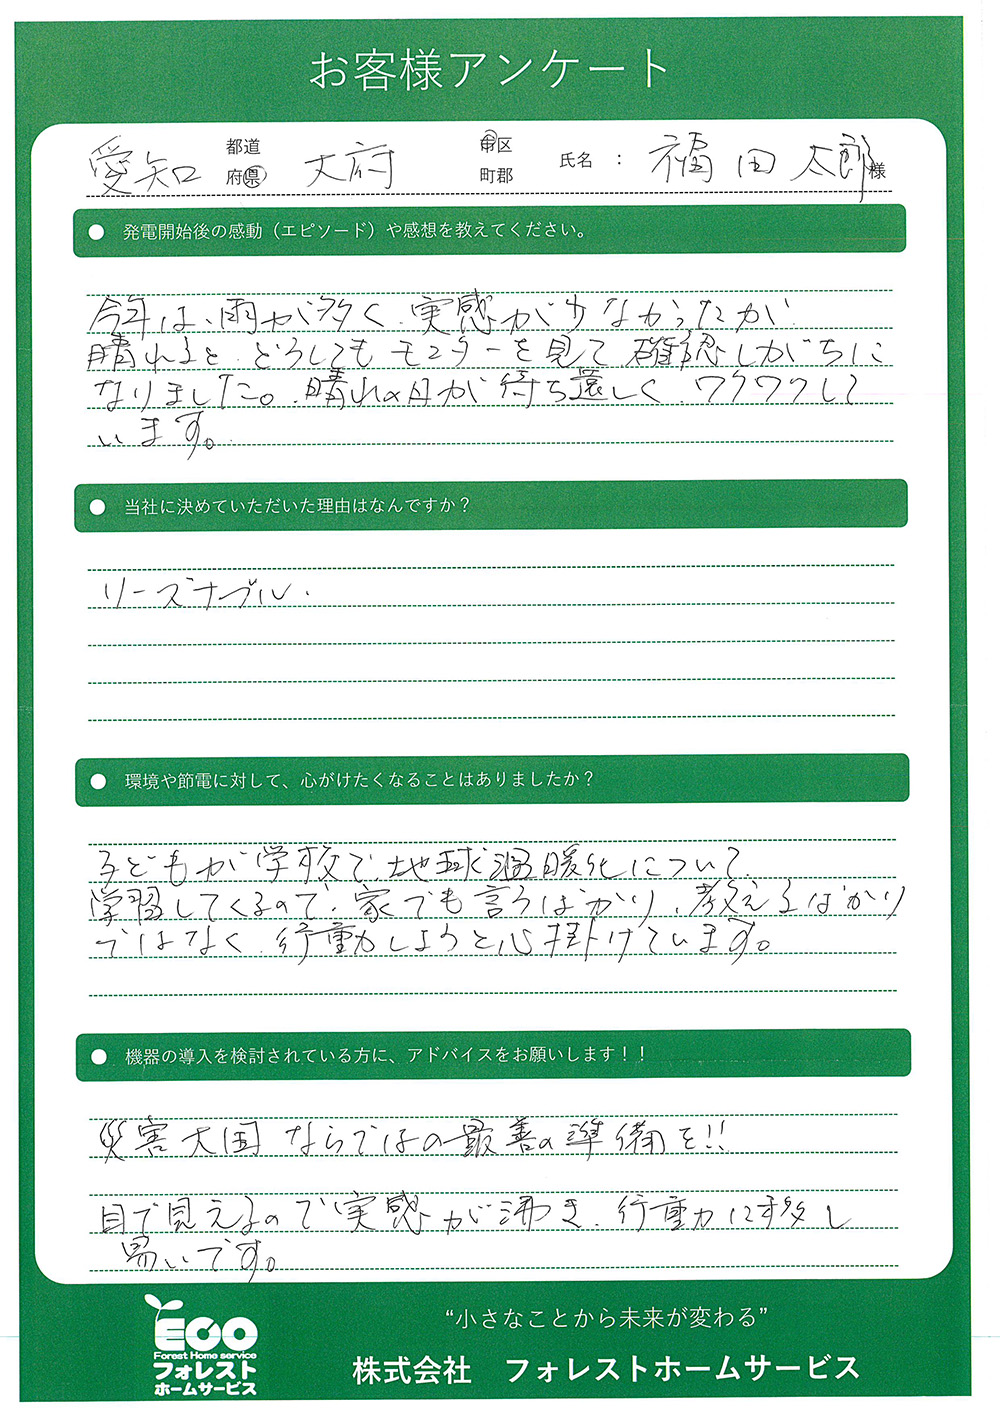 お客様アンケート
愛知 都道府県 大府 市区町郡 氏名 : 福田 太郎 様
● 発電開始後の感動（エピソード）や感想を教えてください。
今年は、雨が多く、実感が少なかったが、
晴れると、どうしてもモニターを見て確認しがちに
なりました。晴れの日が待ち遠しく、ワクワクして
います。
● 当社に決めていただいた理由はなんですか？
リーズナブル.
● 環境や節電に対して、心がけたくなることはありましたか？
子どもが学校で、地球温暖化について、
学習してくるので、家でも言うばかり、教えるばかり
ではなく、行動しようと心掛けています。
● 機器の導入を検討されている方に、アドバイスをお願いします！！
災害大国ならではの最善の準備を!!
目で見えるので実感が沸き、行動に移し
易いです。
ECO
Forest Home service
フォレスト
ホームサービス
“小さなことから未来が変わる”
株式会社 フォレストホームサービス